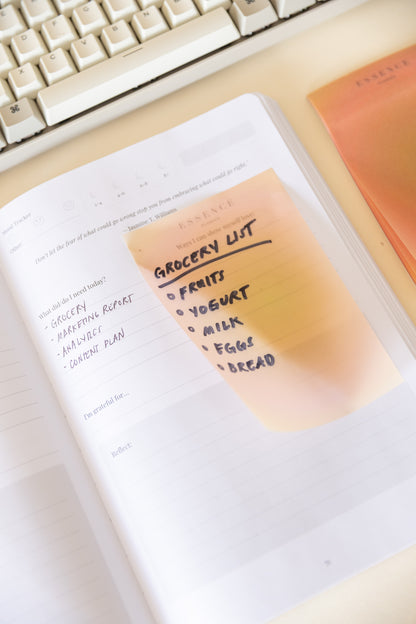 ESSENCE
Mood Tracker
Other:
Don't let the fear of what could go wrong stop you from embracing what could go right.
— Jasmine T. Williams
ESSENCE
Ways I can show myself love:
GROCERY LIST
FRUITS
YOGURT
MILK
EGGS
BREAD
What did/do I need today?
- GROCERY
- MARKETING REPORT
- ANALYTICS
- CONTENT PLAN
I'm grateful for...
Reflect: